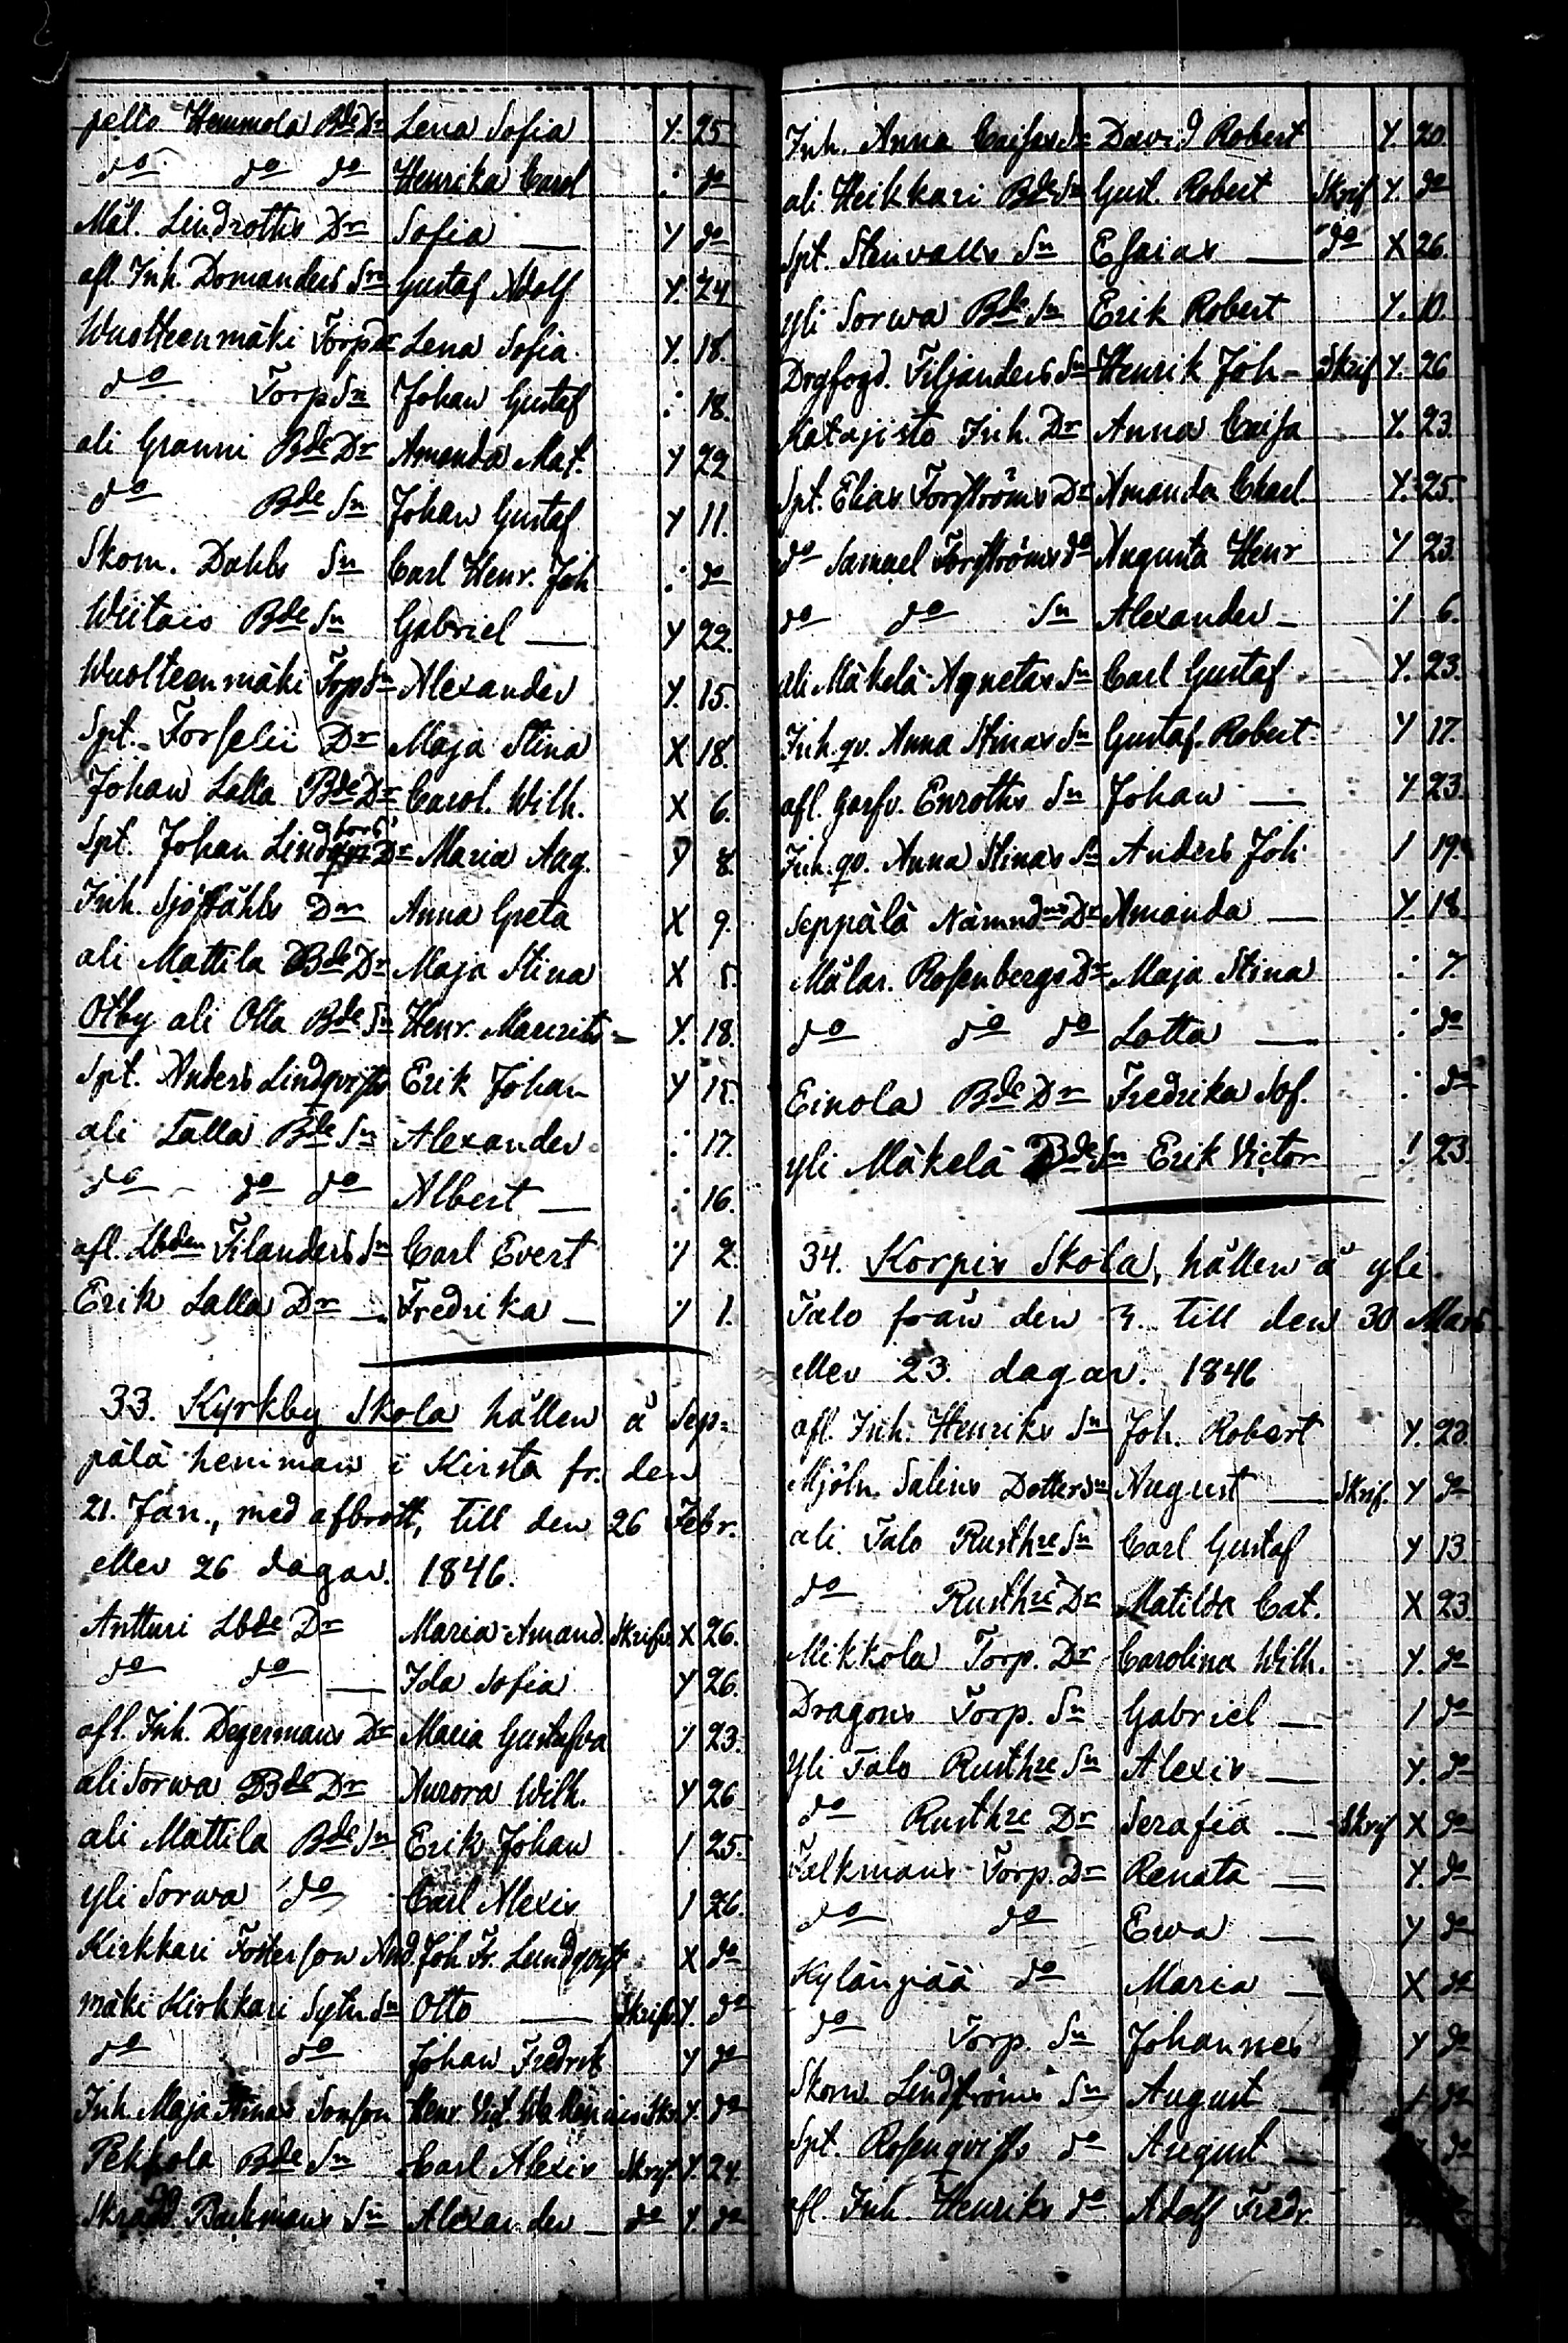 pello Hemmola Bde Dr Lena Sofia Y. 25
do do do Henrika Carol : do
Mål. Lindroths Dr Sofia — Y do
afl. Inh. Domanders Sn Gustaf Adolf Y. 24
Wuolteenmäki Torp Dr Lena Sofia Y. 18.
do Torp Sn Johan Gustaf : 18.
ali Granni Bde Dr Amanda Mat. Y 22
do Bde Sn Johan Gustaf Y 11.
Skom. Dahls Sn Carl Henr. Joh : do
Weitais Bde Sn Gabriel — Y 22.
Wuolteenmäki Torp Sn Alexander Y. 15.
Spt. Forselii Dr Maja Stina X 18.
Johan Lalla Bde Dr Carol. Wilh. X 6.
Spt. Johan Lindfors Dr Maria Aug. Y 8.
Inh. Sjöståhls Dr Anna Greta X 9.
ali Mattila Bde Dr Maja Stina X 5.
Otby ali Olla Bde Sn Henr. Maurits Y. 18.
Spt. Anders Lindqvists Erik Johan Y 15.
ali Lalla Bde Sn Alexander : 17.
do do do Albert — : 16.
afl. Lbden Filanders Sn Carl Evert Y 2.
Erik Lalla Dr — Fredrika — Y 1.
33. Kyrkby Skola hållen å Sep=
pälä hemman i Kirsta fr. den
21. Jan., med afbrott, till den 26 Febr.
eller 26 dagar. 1846.
Antturi Lbde Dr Maria Amand. Skrifv. X 26.
do do — Ida Sofia Y 26.
afl. Inh. Degermans Dr Maria Gustafva Y 23.
ali Sorwa Bde Dr Aurora Wilh. Y 26
ali Mattila Bde Sn Erik Johan / 25.
yli Sorwa do Carl Alexis / 26.
Kirkkari Fosterson And. Joh Fr. Lundqvist X do
mäki Kirkkari Sytn Sn Otto — Skrifv. Y. do
do do Johan Fredrik Y do
Inh. Maja Stinas Sonson Henr. Vict. Skr. Y. do
Pekkola Bde Sn Carl Alexis Skrif. Y. 24.
Skrädd. Backmans Sn Alexander — do Y. do
Inh. Anna Caisas Sn David Robert Y. 20.
ali Heikkari Bde Sn Gust. Robert Skrif Y. do
Spt. Stenvalls Sn Esaias — do X 26.
yli Sorwa Bde Sn Erik Robert Y. 10.
Drgfogd. Filjanders Sn Henrik Joh — Skrif Y. 26
Katajisto Inh. Dr Anna Caisa Y. 23.
Spt. Elias Forströms Dr Amanda Charl. Y. 25.
do Samuel Forströms do Augusta Henr Y 23.
do do Sn Alexander — Y 6.
ali Mäkelä Agnetas Sn Carl Gustaf Y. 23.
Inh. qv. Anna Stinas Sn Gustaf. Robert Y 17.
afl. garfv. Enroths Sn Johan — Y 23.
Inh. qv. Anna Stinas Sn Anders Joh / 19.
Seppälä Nämndms Dr Amanda — Y. 18
Målar. Rosenbergs Dr Maja Stina : 7
do do do Lotta — : do
Einola Bde Dr Fredrika Sof. : do
yli Mäkelä Bde Sn Erik Victor ! 23.
34. Korpis Skola, hållen å yli
Talo från den 3. till den 30 Mars
eller 23. dagar. 1846
afl. Inh. Henriks Sn Joh. Robert Y. 23
Mjöln. Salins Dotterson August — Skrif. Y do
ali. Talo Rusthre Sn Carl Gustaf Y 13
do Rusthre Dr Matilda Cat. X 23
Mikkola Torp. Dr Carolina Wilh. Y. do
Dragons Torp. Sn Gabriel — / do
yli Talo Rusthre Sn Alexis — Y. do
do Rusthre Dr Serafia — Skrif X do
Falkmans Torp. Dr Renata — Y. do
do do Ewa — Y do
Kylänpää do Maria — X do
do Torp. Sn Johannes Y do
Skom. Lindströms Sn August — do
Spt. Rosenqvists do August — do
afl. Inh. Henriks do Adolf Fredr.